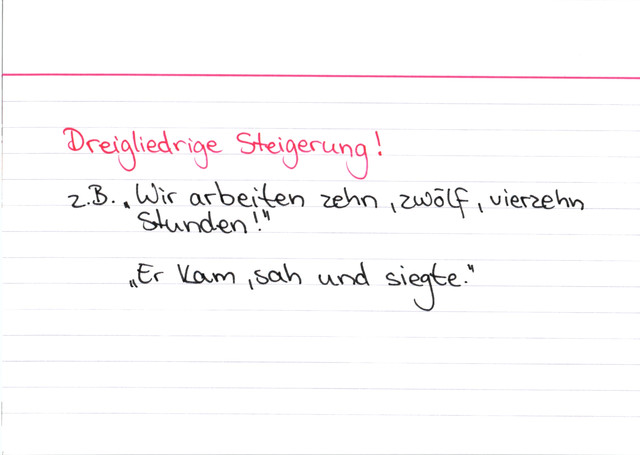 Dreigliedrige Steigerung!
z.B. „Wir arbeiten zehn, zwölf, vierzehn
Stunden!"
„Er kam, sah und siegte."